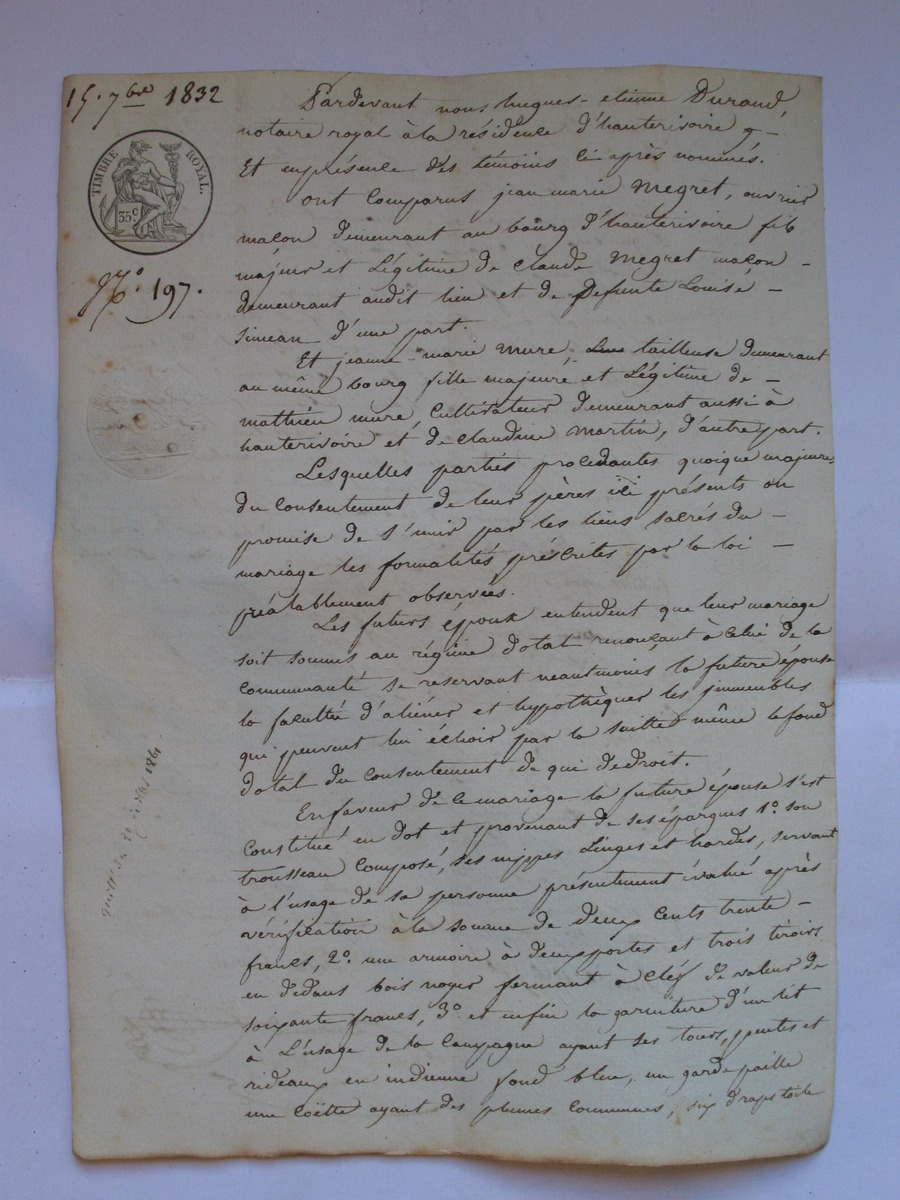 15. 7bre 1832
TIMBRE ROYAL.
35c
No. 197.
Pardevant nous hugues-etienne Durand,
notaire royal à la résidence d'hauterivoire
Et en présence des témoins ci après nommés.
Ont comparus jean marie Megret, ouvrier
maçon demeurant au bourg d'hauterivoire fils
majeur et Légitime de claude Megret maçon -
demeurant audit lieu et de Defunte Louise -
Simean d'une part.
Et jeanne-marie Mure, tailleuse demeurant
au même bourg fille majeure et Légitime de -
mathieu mure, Cultivateur demeurant aussi à
hauterivoire et de claudine Martin, d'autre part.
Lesquelles parties procédantes quoique majeures
du consentement de leur pères ici présents on
promise de s'unir par les liens sacrés du -
mariage les formalités préscrites par la loi -
préalablement observées.
Les futurs époux entendent que leur mariage
soit soumis au régime dotal renonçant à celui de la
communauté se reservant neantmoins la future épouse
la faculté d'aliéner et hypothèquer les immeubles
qui peuvent lui échoir par la suitte même le fond
dotal du consentement de qui de droit.
En faveur de ce mariage la future épouse s'est
Constitué en dot et provenant de ses épargnes 1o. son
trousseau composé, ses nippes Linges et hardes, servant
à l'usage de sa personne présentement évalué après
vérification à la somme de deux cents trente -
francs, 2o. une armoire à deux portes et trois tiroirs
en dedans bois noyer fermant à clef de valeur de
soixante francs, 3o. et enfin la garniture d'un lit
à L'usage de la Campagne ayant ses tours, pentes et
rideaux en indienne fond bleu, un garde paille
une coëtte ayant des plumes communes, six draps toile